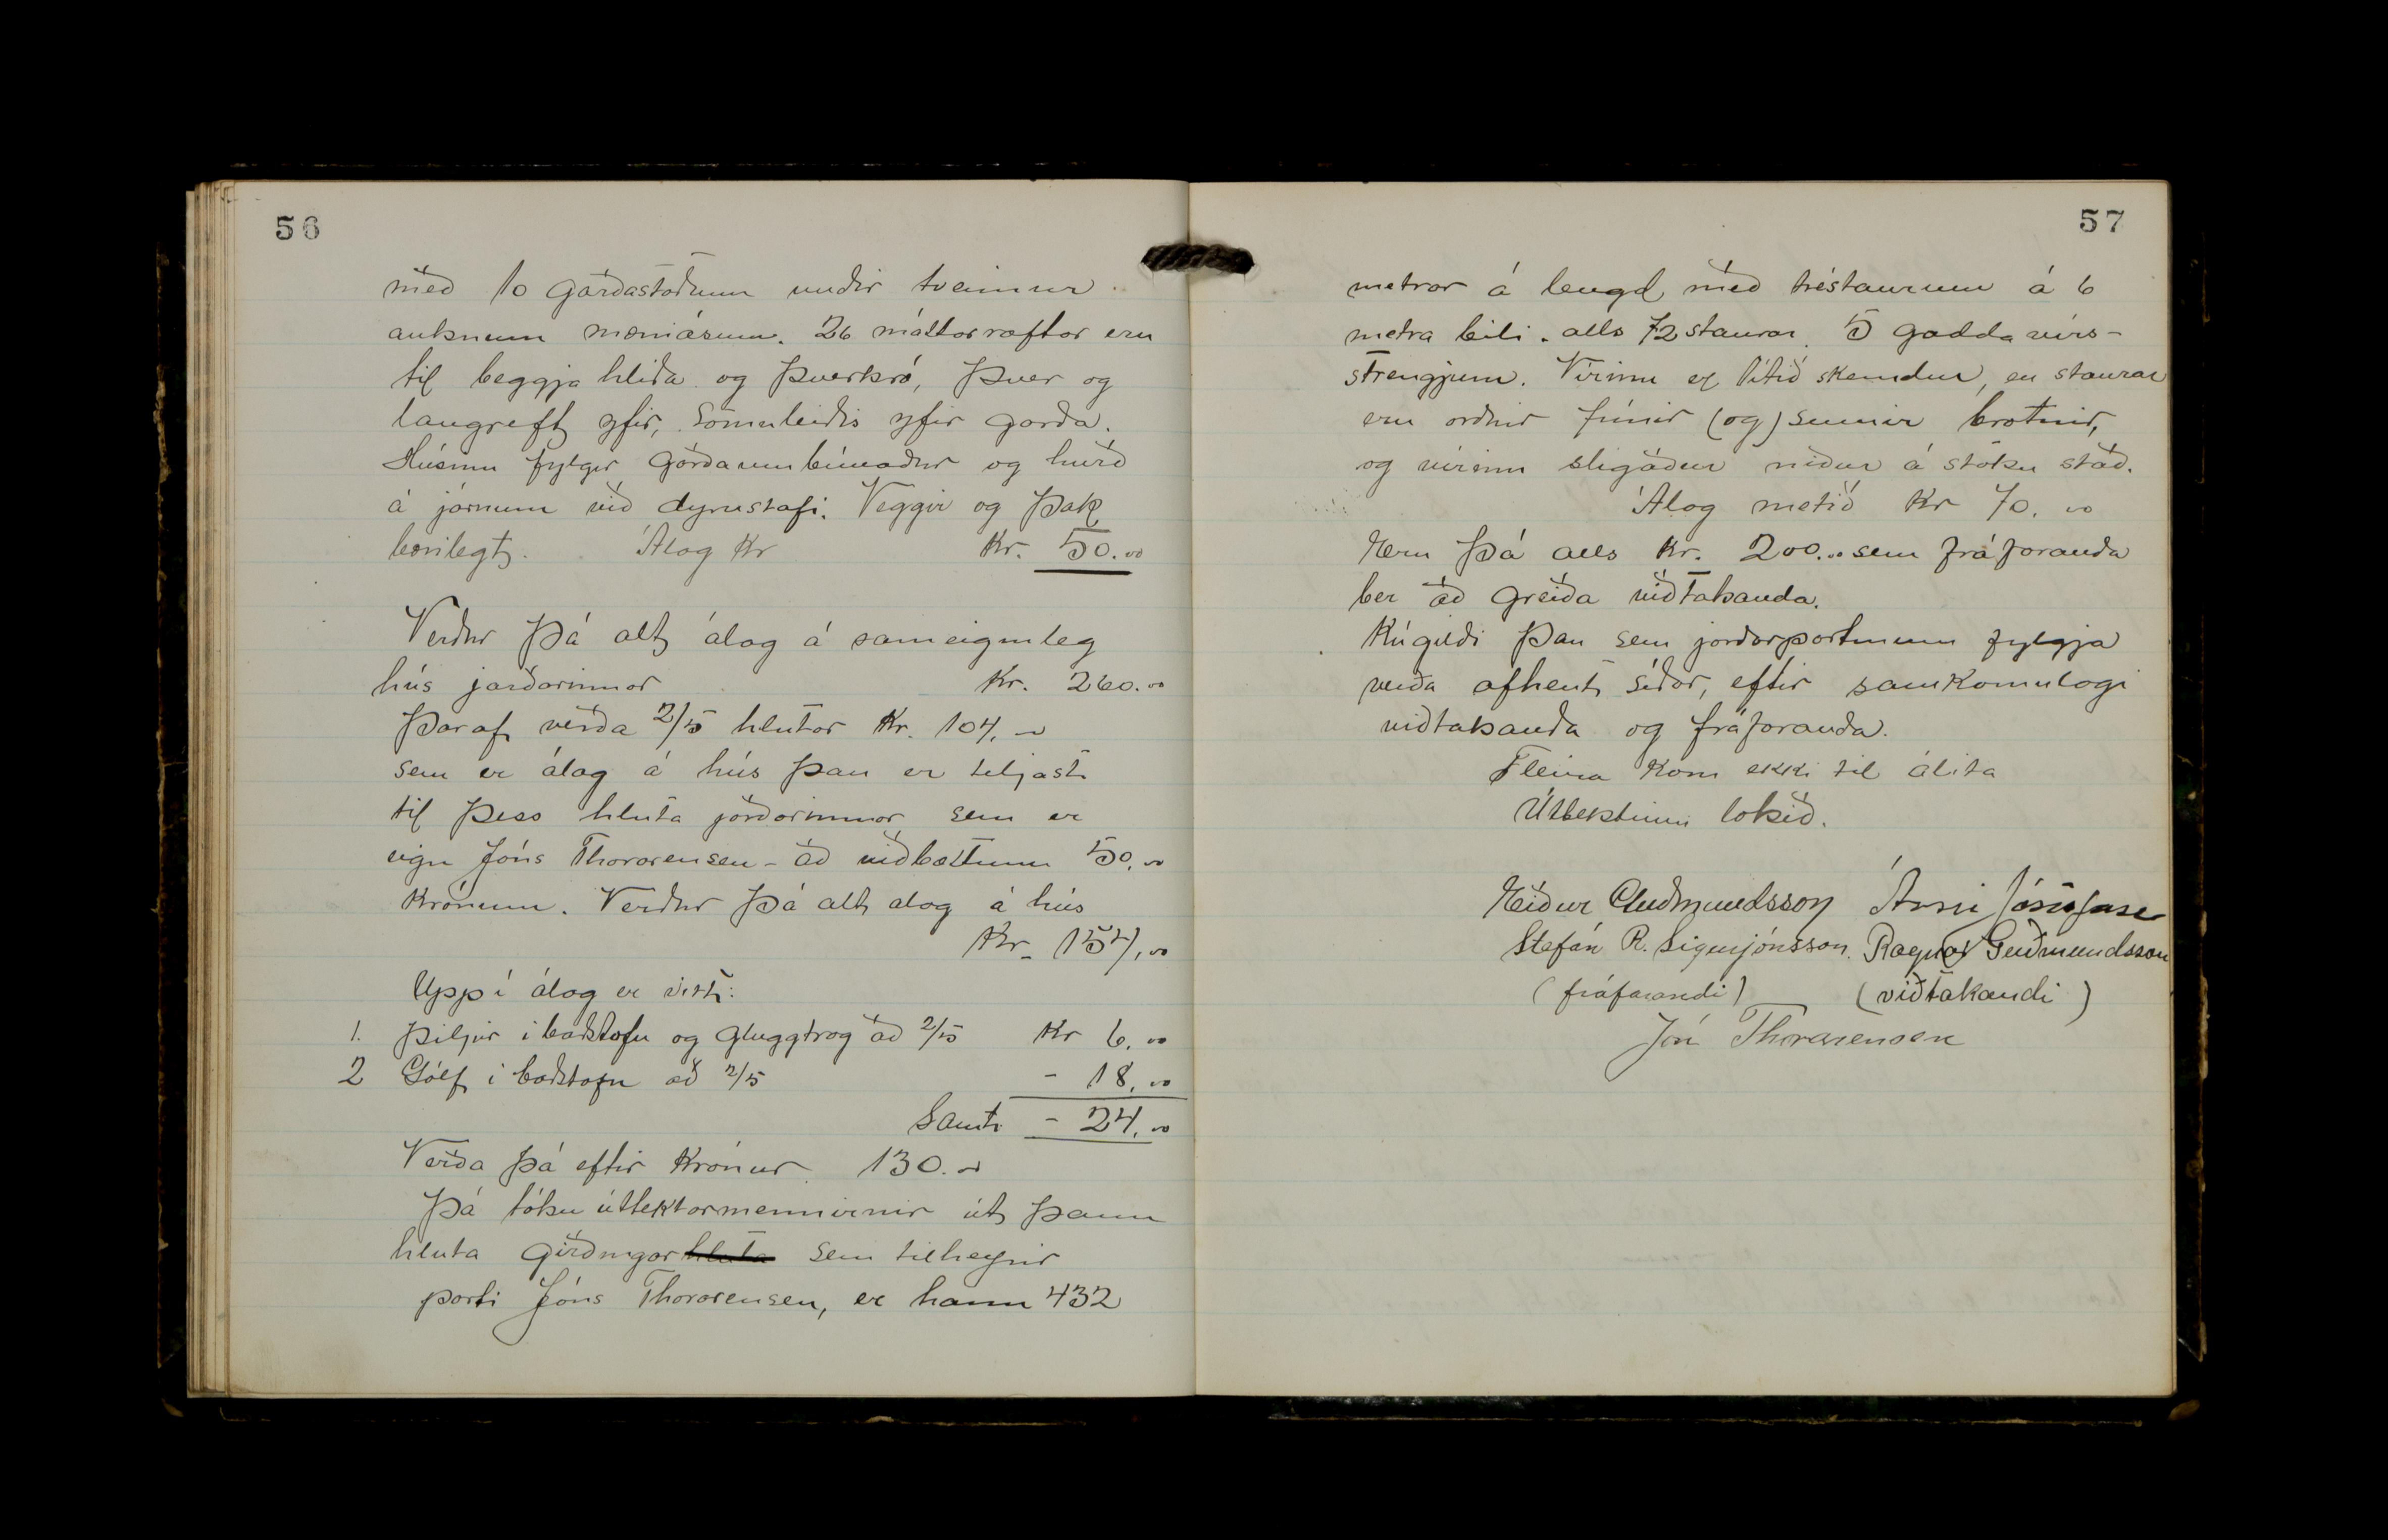 56
með 10 garðastoðum undir tveimur
auknum mæniásum. 26 máttarraftar eru
til beggja hliða og þverkró, þver og
langreft yfir, sömuleiðis yfir garða.
Húsinu fylgir görðaumbúnaður og hurð
á járnum við dyrustafi. Veggir og þak
bærilegt. Álag Kr Kr. 50.00
Verður þá alt álag á sameignleg
hús jarðarinnar Kr. 260.00
Þar af verða 2/5 hlutar Kr. 104.00
sem er álag á hús þau er teljast
til þess hluta jarðarinnar sem er
eign Jóns Thorarensen - að viðbættum 50.00
Krónum. Verður þá alt álag á hús
Kr. 154.00
Upp í álag er vist:
1. Þiljur í baðstofu og gluggtrog að 2/5 Kr 6.00
2 Gólf í baðstofu að 2/5 - 18.00
Samt. - 24.00
Verða þá eftir Krónur 130.00
Þá tóku úttektarmennirnir út þann
hluta girðingar hluta sem tilheyrir
parti Jóns Thorarensen, er hann 432
57
metrar á lengd með tréstaurum á 6
metra bili. alls 72 staurar. 5 gaddavírs-
strengjum. Vírinn er lítið skemdur, en staurar
eru orðnir fúnir (og) sumir brotnir,
og vírinn sligaður niður á stöku stað.
Álag metið Kr 70.00
Heru þá alls Kr. 200.00 sem fráfaranda
ber að greiða viðtakanda.
Kúgildi þau sem jarðarpartinum fylgja
verða afhent síðar, eftir samkomulagi
viðtakanda og fráfaranda.
Fleira kom ekki til álita
Úttektinni lokið.
Heiður Guðmundsson Árni
Stefán R. Sigurjónsson. Ragnar Guðmundsson
(fráfarandi) (viðtakandi)
Jón Thorarensen